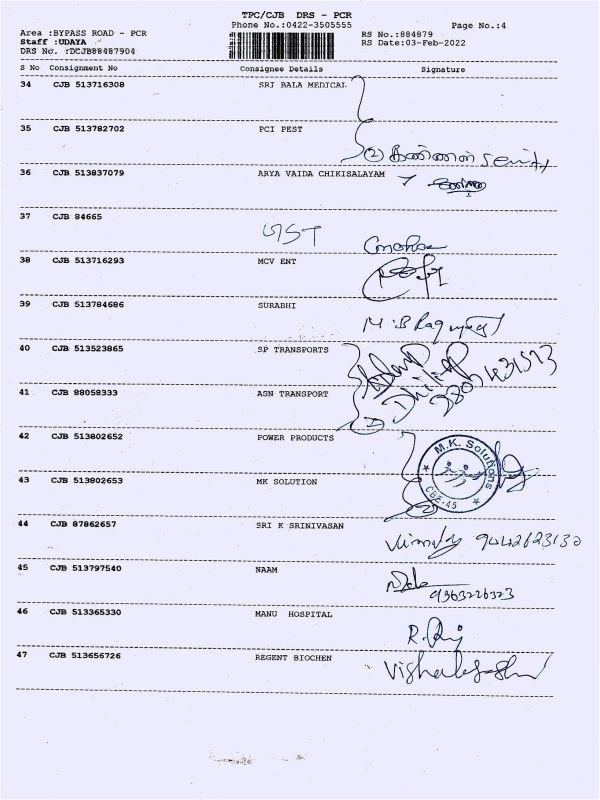 TPC/CJB DRS - PCR
Phone No.:0422-3505555 Page No.:4
Area :BYPASS ROAD - PCR RS No.:884879
Staff :UDAYA RS Date:03-Feb-2022
DRS No. :DCJB88487904
S No Consignment No Consignee Details Signature
34 CJB 513716308 SRI BALA MEDICAL
35 CJB 513782702 PCI PEST
② கண்ணன்
36 CJB 513837079 ARYA VAIDA CHIKISALAYAM
37 CJB 84665
38 CJB 513716293 MCV ENT
39 CJB 513784686 SURABHI
M.B
40 CJB 513523865 SP TRANSPORTS
41 CJB 88058333 ASN TRANSPORT
42 CJB 513802652 POWER PRODUCTS
M.K. Solutions
CBE-45
43 CJB 513802653 MK SOLUTION
44 CJB 87862657 SRI K SRINIVASAN
9442623130
45 CJB 513797540 NAAM
9363226323
46 CJB 513365330 MANU HOSPITAL
47 CJB 513656726 REGENT BIOCHEN